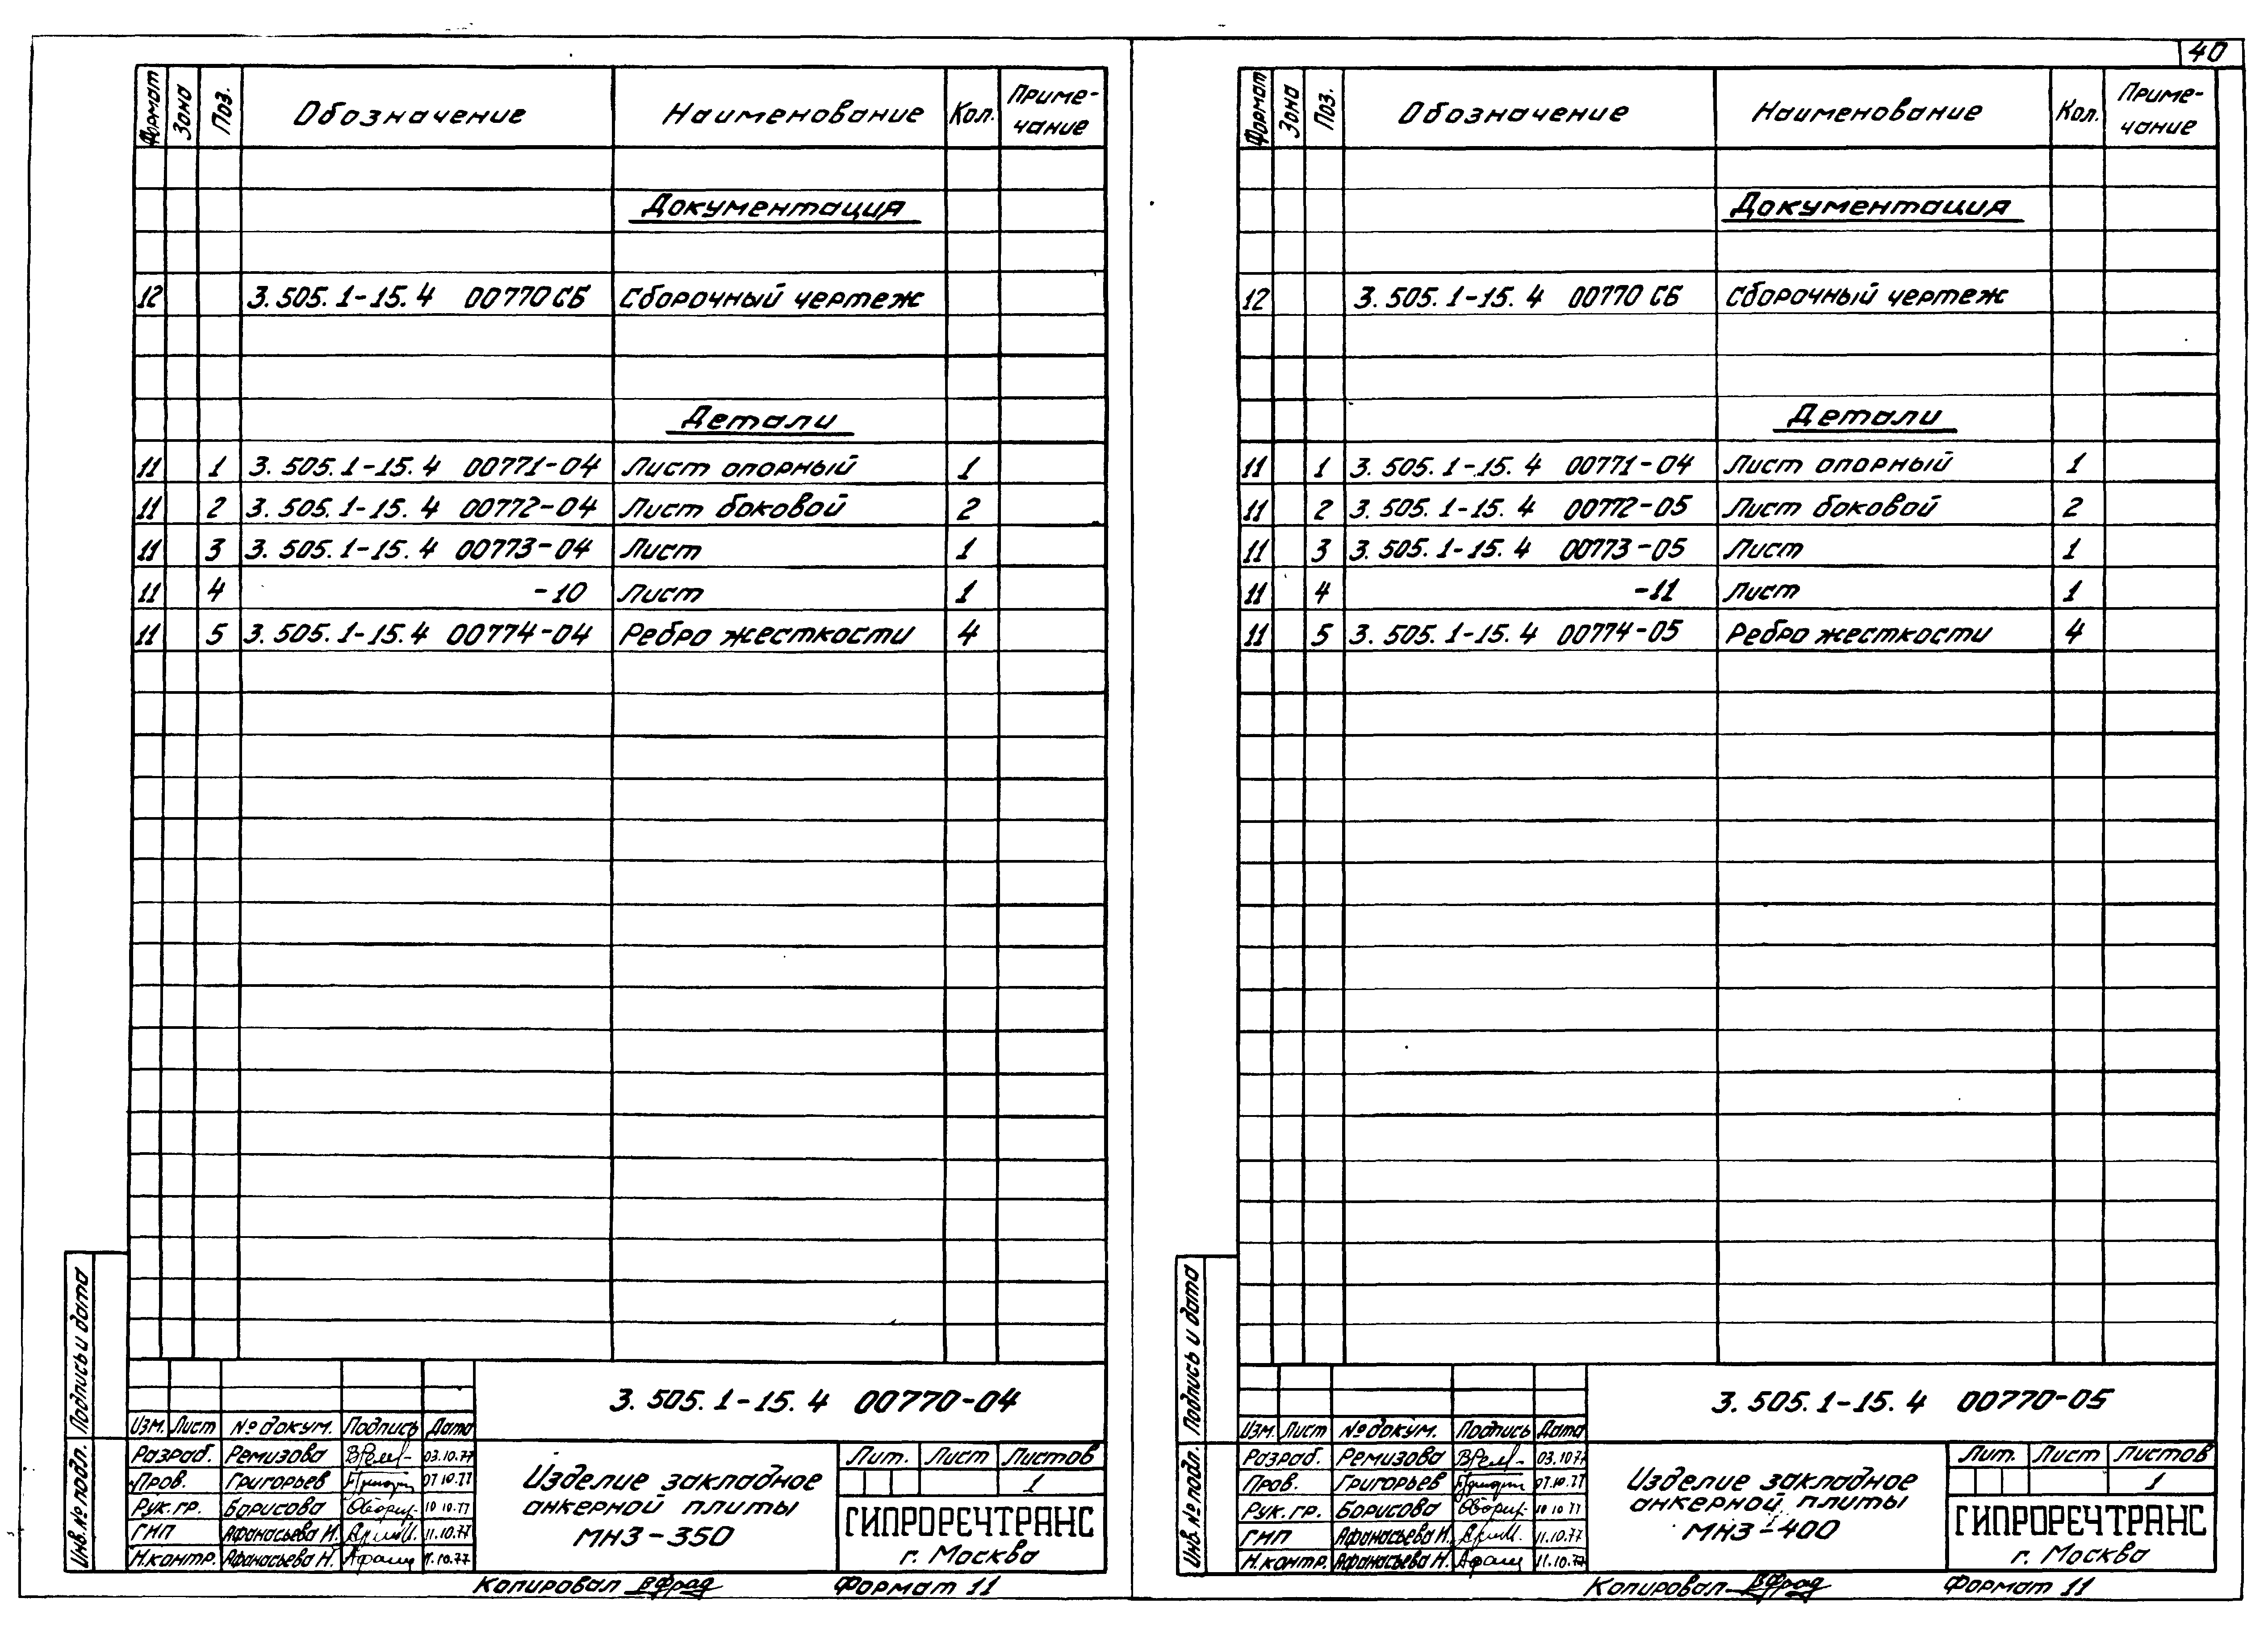 40
Формат Зона Поз. Обозначение Наименование Кол. Приме-
чание
Документация
12 3.505.1-15.4 00770СБ Сборочный чертеж
Детали
11 1 3.505.1-15.4 00771-04 Лист опорный 1
11 2 3.505.1-15.4 00772-04 Лист боковой 2
11 3 3.505.1-15.4 00773-04 Лист 1
11 4 -10 Лист 1
11 5 3.505.1-15.4 00774-04 Ребро жесткости 4
Подпись и дата
Инв. № подл.
3.505.1-15.4 00770-04
Изм. Лист № докум. Подпись Дата
Разраб. Ремизова 03.10.77
Пров. Григорьев 07.10.77
Рук. гр. Борисова 10.10.77
ГИП Афанасьева И. 11.10.77
Н.контр. Афанасьева Н. 11.10.77
Изделие закладное
анкерной плиты
МНЗ-350
Лит. Лист Листов
1
ГИПРОРЕЧТРАНС
г. Москва
Копировал Формат 11
Формат Зона Поз. Обозначение Наименование Кол. Приме-
чание
Документация
12 3.505.1-15.4 00770 СБ Сборочный чертеж
Детали
11 1 3.505.1-15.4 00771-04 Лист опорный 1
11 2 3.505.1-15.4 00772-05 Лист боковой 2
11 3 3.505.1-15.4 00773-05 Лист 1
11 4 -11 Лист 1
11 5 3.505.1-15.4 00774-05 Ребро жесткости 4
Подпись и дата
Инв. № подл.
3.505.1-15.4 00770-05
Изм. Лист № докум. Подпись Дата
Разраб. Ремизова 03.10.77
Пров. Григорьев 07.10.77
Рук. гр. Борисова 10.10.77
ГИП Афанасьева И. 11.10.77
Н.контр. Афанасьева Н. 11.10.77
Изделие закладное
анкерной плиты
МНЗ-400
Лит. Лист Листов
1
ГИПРОРЕЧТРАНС
г. Москва
Копировал Формат 11